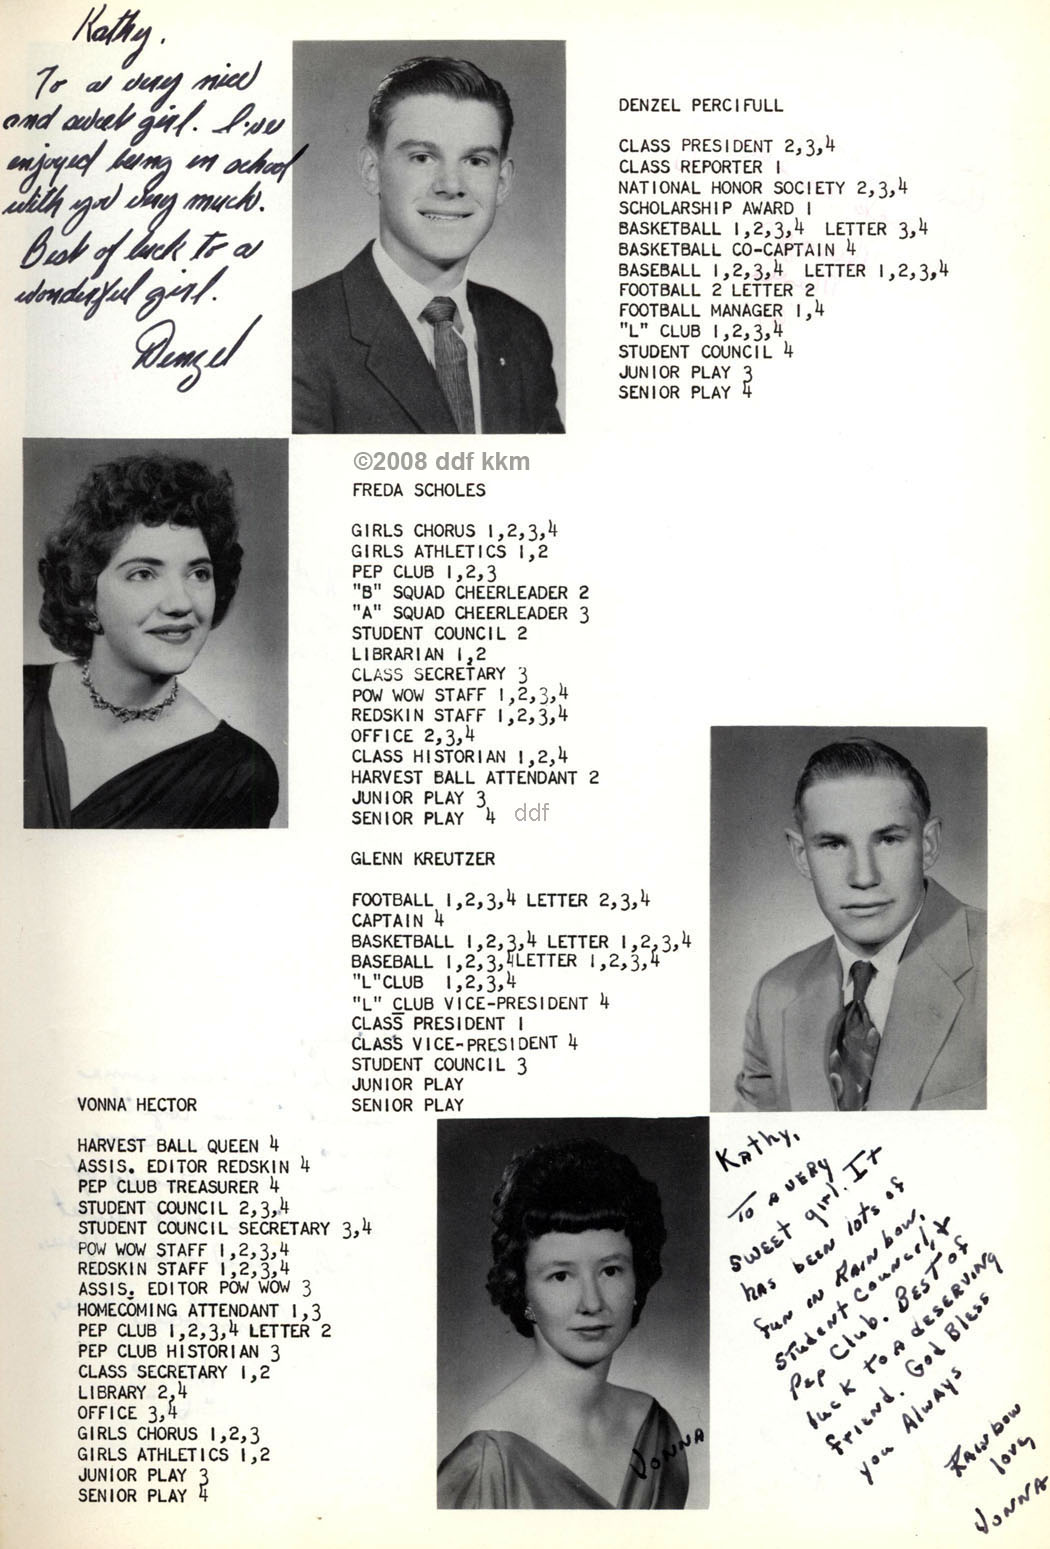 Kathy,
To a very nice
and sweet girl. I've
enjoyed being in school
with you very much.
Best of luck to a
wonderful girl.
Denzel
DENZEL PERCIFULL
CLASS PRESIDENT 2,3,4
CLASS REPORTER 1
NATIONAL HONOR SOCIETY 2,3,4
SCHOLARSHIP AWARD 1
BASKETBALL 1,2,3,4 LETTER 3,4
BASKETBALL CO-CAPTAIN 4
BASEBALL 1,2,3,4 LETTER 1,2,3,4
FOOTBALL 2 LETTER 2
FOOTBALL MANAGER 1,4
"L" CLUB 1,2,3,4
STUDENT COUNCIL 4
JUNIOR PLAY 3
SENIOR PLAY 4
©2008 ddf kkm
FREDA SCHOLES
GIRLS CHORUS 1,2,3,4
GIRLS ATHLETICS 1,2
PEP CLUB 1,2,3
"B" SQUAD CHEERLEADER 2
"A" SQUAD CHEERLEADER 3
STUDENT COUNCIL 2
LIBRARIAN 1,2
CLASS SECRETARY 3
POW WOW STAFF 1,2,3,4
REDSKIN STAFF 1,2,3,4
OFFICE 2,3,4
CLASS HISTORIAN 1,2,4
HARVEST BALL ATTENDANT 2
JUNIOR PLAY 3
SENIOR PLAY 4
ddf
GLENN KREUTZER
FOOTBALL 1,2,3,4 LETTER 2,3,4
CAPTAIN 4
BASKETBALL 1,2,3,4 LETTER 1,2,3,4
BASEBALL 1,2,3,4LETTER 1,2,3,4
"L"CLUB 1,2,3,4
"L" CLUB VICE-PRESIDENT 4
CLASS PRESIDENT 1
CLASS VICE-PRESIDENT 4
STUDENT COUNCIL 3
JUNIOR PLAY
SENIOR PLAY
VONNA HECTOR
HARVEST BALL QUEEN 4
ASSIS. EDITOR REDSKIN 4
PEP CLUB TREASURER 4
STUDENT COUNCIL 2,3,4
STUDENT COUNCIL SECRETARY 3,4
POW WOW STAFF 1,2,3,4
REDSKIN STAFF 1,2,3,4
ASSIS. EDITOR POW WOW 3
HOMECOMING ATTENDANT 1,3
PEP CLUB 1,2,3,4 LETTER 2
PEP CLUB HISTORIAN 3
CLASS SECRETARY 1,2
LIBRARY 2,4
OFFICE 3,4
GIRLS CHORUS 1,2,3
GIRLS ATHLETICS 1,2
JUNIOR PLAY 3
SENIOR PLAY 4
VONNA
Kathy,
To a very
sweet girl. It
has been lots of
fun in Rainbow,
Student Council, +
Pep Club. Best of
luck to a deserving
friend. God Bless
you Always
Rainbow
love,
Vonna